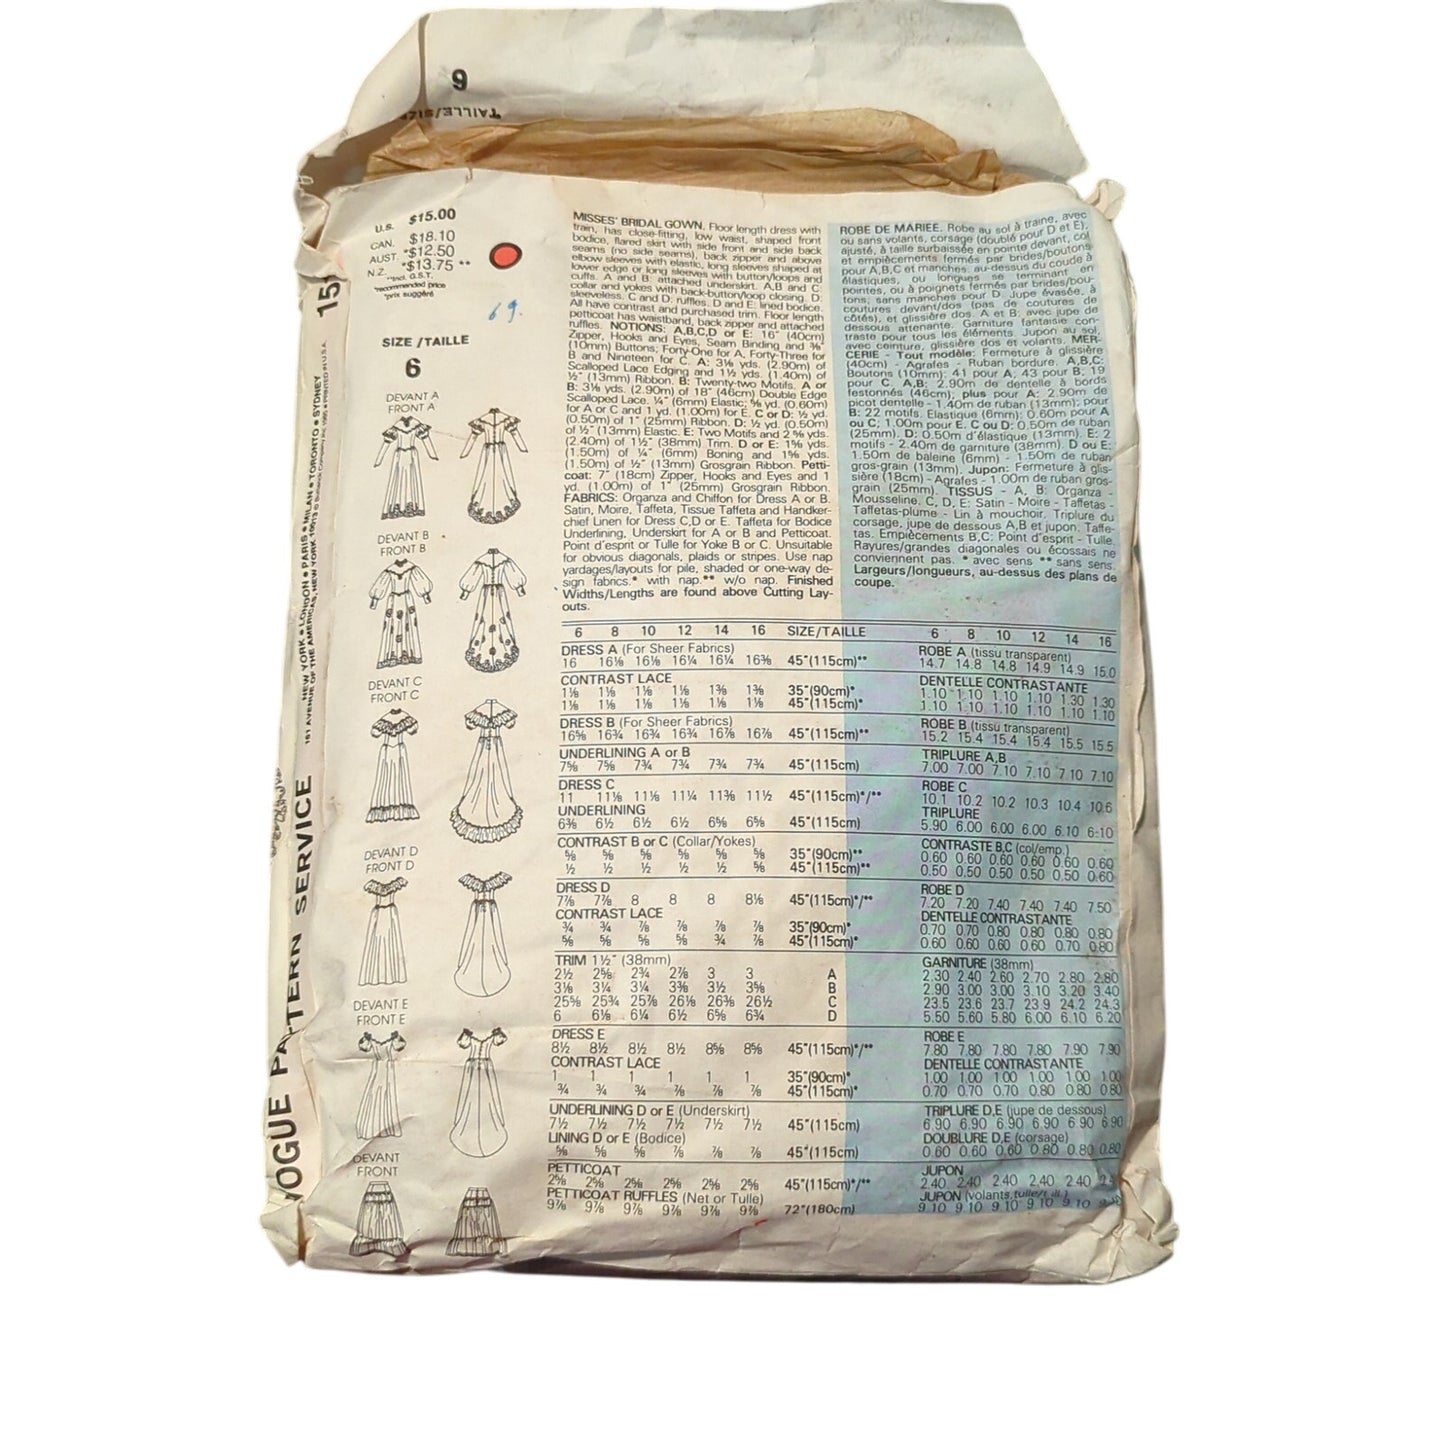 6
TAILLE/SIZE
U.S. $15.00
CAN. $18.10
AUST. *$12.50
N.Z. *$13.75 **
**incl. G.S.T.
*recommended price
*prix suggéré
69.
SIZE /TAILLE
6
DEVANT A
FRONT A
DEVANT B
FRONT B
DEVANT C
FRONT C
DEVANT D
FRONT D
DEVANT E
FRONT E
DEVANT
FRONT
15
VOGUE PATTERN SERVICE
NEW YORK • LONDON • PARIS • MILAN • TORONTO • SYDNEY
161 AVENUE OF THE AMERICAS, NEW YORK, NEW YORK 10013
PRINTED IN U.S.A.
MISSES' BRIDAL GOWN. Floor length dress with
train, has close-fitting, low waist, shaped front
bodice, flared skirt with side front and side back
seams (no side seams), back zipper and above
elbow sleeves with elastic, long sleeves shaped at
lower edge or long sleeves with button/loops and
cuffs. A and B: attached underskirt. A,B and C:
collar and yokes with back-button/loop closing. D:
sleeveless. C and D: ruffles. D and E: lined bodice.
All have contrast and purchased trim. Floor length
petticoat has waistband, back zipper and attached
ruffles. NOTIONS: A,B,C,D or E: 16" (40cm)
Zipper, Hooks and Eyes, Seam Binding and ⅜"
(10mm) Buttons; Forty-One for A, Forty-Three for
B and Nineteen for C. A: 3⅛ yds. (2.90m) of
Scalloped Lace Edging and 1½ yds. (1.40m) of
½" (13mm) Ribbon. B: Twenty-two Motifs. A or
B: 3⅛ yds. (2.90m) of 18" (46cm) Double Edge
Scalloped Lace. ¼" (6mm) Elastic; ⅝ yd. (0.60m)
for A or C and 1 yd. (1.00m) for E. C or D: ½ yd.
(0.50m) of 1" (25mm) Ribbon. D: ½ yd. (0.50m)
of ½" (13mm) Elastic. E: Two Motifs and 2⅝ yds.
(2.40m) of 1½" (38mm) Trim. D or E: 1⅝ yds.
(1.50m) of ¼" (6mm) Boning and 1⅝ yds.
(1.50m) of ½" (13mm) Grosgrain Ribbon. Petti-
coat: 7" (18cm) Zipper, Hooks and Eyes and 1
yd. (1.00m) of 1" (25mm) Grosgrain Ribbon.
FABRICS: Organza and Chiffon for Dress A or B.
Satin, Moire, Taffeta, Tissue Taffeta and Handker-
chief Linen for Dress C,D or E. Taffeta for Bodice
Underlining, Underskirt for A or B and Petticoat.
Point d'esprit or Tulle for Yoke B or C. Unsuitable
for obvious diagonals, plaids or stripes. Use nap
yardages/layouts for pile, shaded or one-way de-
sign fabrics.* with nap.** w/o nap. Finished
Widths/Lengths are found above Cutting Lay-
outs.
ROBE DE MARIEE. Robe au sol à traine, avec
ou sans volants, corsage (doublé pour D et E),
ajusté, à taille surbaissée en pointe devant, col
et empiècements fermés par brides/boutons
pour A,B,C et manches: au-dessus du coude à
élastiques, ou longues se terminant en
pointes, ou à poignets fermés par brides/bou-
tons; sans manches pour D. Jupe évasée, à
coutures devant/dos (pas de coutures de
côtés), et glissière dos. A et B: avec jupe de
dessous attenante. Garniture fantaisie con-
traste pour tous les éléments. Jupon au sol,
avec ceinture, glissière dos et volants. MER-
CERIE - Tout modèle: Fermeture à glissière
(40cm) - Agrafes - Ruban bordure. A,B,C:
Boutons (10mm); 41 pour A; 43 pour B; 19
pour C. A,B: 2.90m de dentelle à bords
festonnés (46cm); plus pour A: 2.90m de
picot dentelle - 1.40m de ruban (13mm); pour
B: 22 motifs. Elastique (6mm): 0.60m pour A
ou C; 1.00m pour E. C ou D: 0.50m de ruban
(25mm). D: 0.50m d'élastique (13mm). E: 2
motifs - 2.40m de garniture (38mm). D ou E:
1.50m de baleine (6mm) - 1.50m de ruban
gros-grain (13mm). Jupon: Fermeture à glis-
sière (18cm) - Agrafes - 1.00m de ruban gros-
grain (25mm). TISSUS - A, B: Organza -
Mousseline. C, D, E: Satin - Moire - Taffetas -
Taffetas-plume - Lin à mouchoir. Triplure du
corsage, jupe de dessous A,B et jupon: Taffe-
tas. Empiècements B,C: Point d'esprit - Tulle.
Rayures/grandes diagonales ou écossais ne
conviennent pas. * avec sens ** sans sens.
Largeurs/longueurs, au-dessus des plans de
coupe.
6 8 10 12 14 16 SIZE/TAILLE 6 8 10 12 14 16
DRESS A (For Sheer Fabrics) ROBE A (tissu transparent)
16 16⅛ 16⅛ 16¼ 16¼ 16⅜ 45"(115cm)** 14.7 14.8 14.8 14.9 14.9 15.0
CONTRAST LACE DENTELLE CONTRASTANTE
1⅛ 1⅛ 1⅛ 1⅛ 1⅜ 1⅜ 35"(90cm)* 1.10 1.10 1.10 1.10 1.30 1.30
1⅛ 1⅛ 1⅛ 1⅛ 1⅛ 1⅛ 45"(115cm)* 1.10 1.10 1.10 1.10 1.10 1.10
DRESS B (For Sheer Fabrics) ROBE B (tissu transparent)
16⅝ 16¾ 16¾ 16¾ 16⅞ 16⅞ 45"(115cm)** 15.2 15.4 15.4 15.4 15.5 15.5
UNDERLINING A or B TRIPLURE A,B
7⅝ 7⅝ 7¾ 7¾ 7¾ 7¾ 45"(115cm) 7.00 7.00 7.10 7.10 7.10 7.10
DRESS C ROBE C
11 11⅛ 11⅛ 11¼ 11⅜ 11½ 45"(115cm)*/** 10.1 10.2 10.2 10.3 10.4 10.6
UNDERLINING TRIPLURE
6⅜ 6½ 6½ 6½ 6⅝ 6⅝ 45"(115cm) 5.90 6.00 6.00 6.00 6.10 6.10
CONTRAST B or C (Collar/Yokes) CONTRASTE B,C (col/emp.)
⅝ ⅝ ⅝ ⅝ ⅝ ⅝ 35"(90cm)** 0.60 0.60 0.60 0.60 0.60 0.60
½ ½ ½ ½ ½ ⅝ 45"(115cm)** 0.50 0.50 0.50 0.50 0.50 0.60
DRESS D ROBE D
7⅞ 7⅞ 8 8 8 8⅛ 45"(115cm)*/** 7.20 7.20 7.40 7.40 7.40 7.50
CONTRAST LACE DENTELLE CONTRASTANTE
¾ ¾ ⅞ ⅞ ⅞ ⅞ 35"(90cm)* 0.70 0.70 0.80 0.80 0.80 0.80
⅝ ⅝ ⅝ ⅝ ¾ ⅞ 45"(115cm)* 0.60 0.60 0.60 0.60 0.70 0.80
TRIM 1½" (38mm) GARNITURE (38mm)
2½ 2⅝ 2¾ 2⅞ 3 3 A 2.30 2.40 2.60 2.70 2.80 2.80
3⅛ 3¼ 3¼ 3⅜ 3½ 3⅝ B 2.90 3.00 3.00 3.10 3.20 3.40
25⅝ 25¾ 25⅞ 26⅛ 26⅜ 26½ C 23.5 23.6 23.7 23.9 24.2 24.3
6 6⅛ 6¼ 6½ 6⅝ 6¾ D 5.50 5.60 5.80 6.00 6.10 6.20
DRESS E ROBE E
8½ 8½ 8½ 8½ 8⅝ 8⅝ 45"(115cm)*/** 7.80 7.80 7.80 7.80 7.90 7.90
CONTRAST LACE DENTELLE CONTRASTANTE
1 1 1 1 1 1 35"(90cm)* 1.00 1.00 1.00 1.00 1.00 1.00
¾ ¾ ¾ ⅞ ⅞ ⅞ 45"(115cm)* 0.70 0.70 0.70 0.80 0.80 0.80
UNDERLINING D or E (Underskirt) TRIPLURE D,E (jupe de dessous)
7½ 7½ 7½ 7½ 7½ 7½ 45"(115cm) 6.90 6.90 6.90 6.90 6.90 6.90
LINING D or E (Bodice) DOUBLURE D,E (corsage)
⅝ ⅝ ⅝ ⅞ ⅞ ⅞ 45"(115cm) 0.60 0.60 0.60 0.80 0.80 0.80
PETTICOAT JUPON
2⅝ 2⅝ 2⅝ 2⅝ 2⅝ 2⅝ 45"(115cm)*/** 2.40 2.40 2.40 2.40 2.40
PETTICOAT RUFFLES (Net or Tulle) JUPON (volants,
9⅞ 9⅞ 9⅞ 9⅞ 9⅞ 9⅞ 72"(180cm) 9.10 9.10 9.10 9.10 9.10